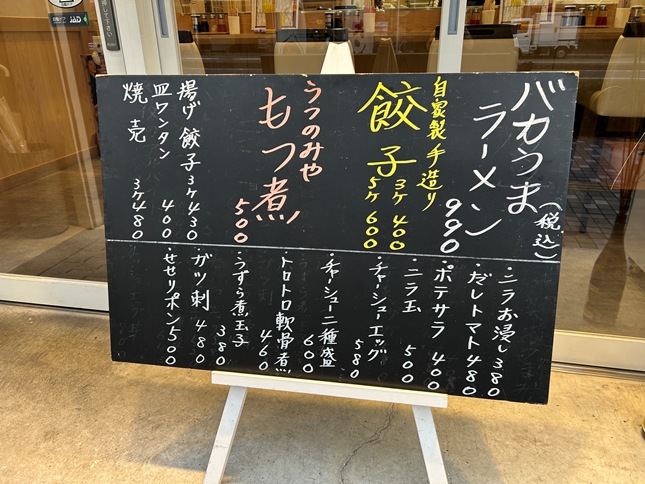 バカうま
ラーメン 990
(税込)
自家製手造り
餃子
3ケ 400
5ケ 600
うつのみや
もつ煮 500
揚げ餃子 3ケ430
皿ワンタン 400
焼売 3ケ480
・ニラお浸し 380
・だしトマト 480
・ポテサラ 400
・ニラ玉 500
・チャーシューエッグ 580
・チャーシュー二種盛 600
・トロトロ軟骨煮 460
・うずら煮玉子 380
・ガツ刺 480
・せせりポン 500